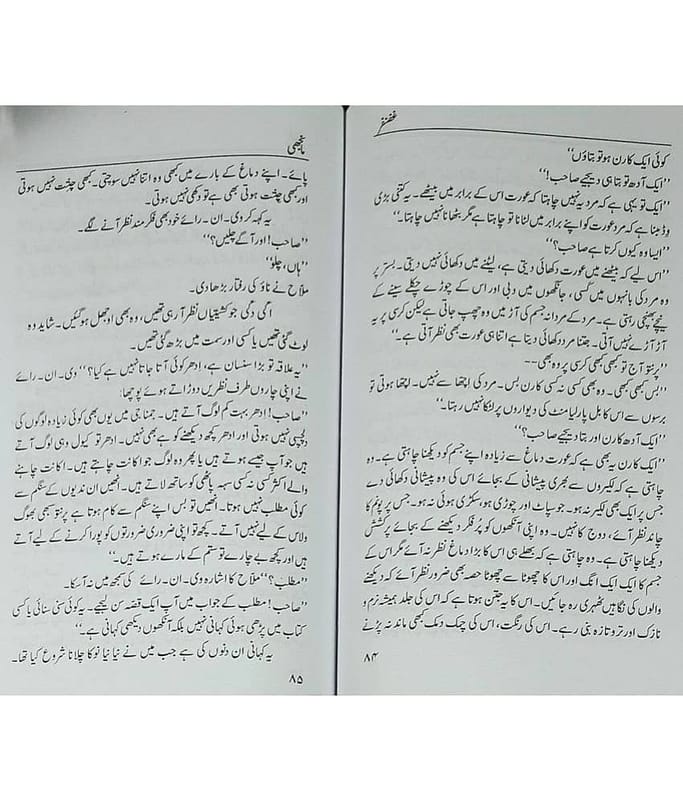 غضنفر
کوئی ایک کارن ہو تو بتاؤں‘‘
’’ایک آدھ تو بتا ہی دیجیے صاحب!‘‘
’’ایک تو یہی ہے کہ مرد یہ نہیں چاہتا کہ عورت اس کے برابر میں بیٹھے۔ یہ کتنی بڑی
وڈمبنا ہے کہ مرد عورت کو اپنے برابر میں لٹانا تو چاہتا ہے مگر بٹھانا نہیں چاہتا۔‘‘
’’ایسا وہ کیوں کرتا ہے صاحب؟‘‘
’’اس لیے کہ بیٹھنے میں عورت دکھائی دیتی ہے، لیٹنے میں دکھائی نہیں دیتی۔ بستر پر
وہ مرد کی بانہوں میں کسی، جانگھوں میں دبی اور اس کے چوڑے چکلے سینے کے
نیچے بھنچی رہتی ہے۔ مرد کے مردانہ جسم کی آڑ میں وہ چھپ جاتی ہے لیکن کرسی پر یہ
آڑ آڑے نہیں آتی۔ جتنا مرد دکھائی دیتا ہے اتنا ہی عورت بھی نظر آتی ہے۔‘‘
’’پرنتو آج تو کبھی کبھی کرسی پر وہ بھی--
’’بس کبھی کبھی۔ وہ بھی کسی نہ کسی کارن بس۔ مرد کی اچھا سے نہیں۔ اچھا ہوتی تو
برسوں سے اس کا بل پارلیامنٹ کی دیواروں پر لٹکا نہیں رہتا۔‘‘
’’ایک آدھ کارن اور بتا دیجیے صاحب؟‘‘
’’ایک کارن یہ بھی ہے کہ عورت دماغ سے زیادہ اپنے جسم کو دیکھنا چاہتی ہے۔ وہ
چاہتی ہے کہ لکیروں سے بھری پیشانی کے بجائے اس کی وہ پیشانی دکھائی دے
جس پر ایک بھی لکیر نہ ہو۔ جو سپاٹ اور چوڑی ہو، سکڑی ہوئی نہ ہو۔ جس پر پونم کا
چاند نظر آئے، دوج کا نہیں۔ وہ اپنی آنکھوں کو پُر فکر دیکھنے کے بجائے پُر کشش
دیکھنا چاہتی ہے۔ وہ چاہتی ہے کہ بھلے ہی اس کا بڑا دماغ نظر نہ آئے مگر اس کے
جسم کا ایک ایک انگ اور اس کا چھوٹا سے چھوٹا حصہ بھی ضرور نظر آئے کہ دیکھنے
والوں کی نگاہیں ٹھہری رہ جائیں۔ اس کا یہ جتن ہوتا ہے کہ اس کی جلد ہمیشہ نرم و
نازک اور تروتازہ بنی رہے۔ اس کی رنگت، اس کی چمک دمک کبھی ماند نہ پڑنے
۸۴
مانجھی
پائے۔ اپنے دماغ کے بارے میں کبھی وہ اتنا نہیں سوچتی۔ کبھی چنتت نہیں ہوتی
اور کبھی چنتت ہوتی بھی ہے تو دکھی نہیں ہوتی۔
یہ کہہ کر وی۔ ان۔ رائے خود بھی فکر مند نظر آنے لگے۔
’’صاحب! اور آگے چلیں؟‘‘
’’ہاں، چلو‘‘
ملاح نے ناؤ کی رفتار بڑھا دی۔
اکی دکی جو کشتیاں نظر آ رہی تھیں، وہ بھی اوجھل ہو گئیں۔ شاید وہ
لوٹ گئی تھیں یا کسی اور سمت میں بڑھ گئی تھیں۔
’’یہ علاقہ تو بڑا سنسان ہے، ادھر کوئی آتا جاتا نہیں ہے کیا؟‘‘ وی۔ ان۔ رائے
نے اپنی چاروں طرف نظریں دوڑاتے ہوئے پوچھا:
’’صاحب! ادھر بہت کم لوگ آتے ہیں۔ جمنا جی میں یوں بھی کوئی زیادہ لوگوں کی
دلچسپی نہیں ہوتی اور ادھر کچھ دیکھنے کو ہے بھی نہیں۔ ادھر تو کیول وہی لوگ آتے
ہیں جو آپ جیسے ہوتے ہیں یا پھر وہ لوگ جو ایکانت چاہتے ہیں۔ ایکانت چاہنے
والے اکثر کسی نہ کسی سبھہ یا بھی کو ساتھ لاتے ہیں۔ انھیں ان ندیوں کے سنگم سے
کوئی مطلب نہیں ہوتا۔ انھیں تو بس اپنے سنگم سے کام ہوتا ہے پرنتو سبھی بھوگ
ولاس کے لیے نہیں آتے۔ کچھ تو اپنی ضروری ضرورتوں کو پورا کرنے کے لیے آتے
ہیں اور کچھ بے چارے تو ستم کے مارے ہوتے ہیں۔‘‘
’’مطلب؟‘‘ ملاح کا اشارہ وی۔ ان۔ رائے کی سمجھ میں نہ آ سکا۔
’’صاحب! مطلب کے جواب میں آپ ایک قصہ سن لیجیے۔ یہ کوئی سنی سنائی یا کسی
کتاب میں پڑھی ہوئی کہانی نہیں بلکہ آنکھوں دیکھی کہانی ہے۔‘‘
یہ کہانی ان دنوں کی ہے جب میں نے نیا نیا نوکا چلانا شروع کیا تھا۔
۸۵